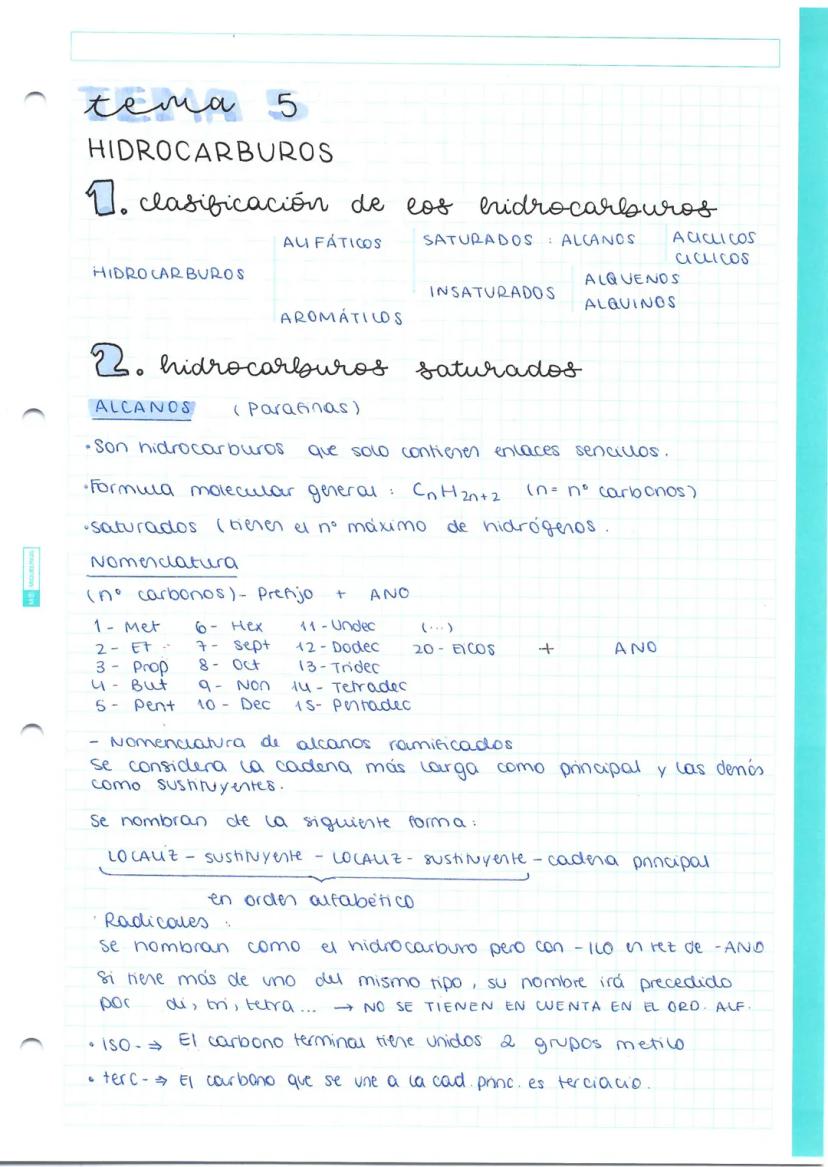 tema 5
HIDROCARBUROS
1. clasificación de los hidrocarburos
ALIFÁTICOS SATURADOS : ALCANOS ACICLICOS
CICLICOS
HIDROCARBUROS
INSATURADOS ALQUENOS
ALQUINOS
AROMÁTICOS
2. hidrocarburos saturados
ALCANOS (Parafinas)
· Son hidrocarburos que solo contienen enlaces sencillos.
· Formula molecular general : CnH2n+2 (n= nº carbonos)
· saturados (tienen el nº máximo de hidrógenos.
Nomenclatura
(nº carbonos)- Prefijo + ANO
1 - Met 6 - Hex 11 - Undec (...)
2 - Et 7 - Sept 12 - Dodec 20 - EICOS + ANO
3 - Prop 8 - Oct 13 - Tridec
4 - But 9 - Non 14 - Tetradec
5 - Pent 10 - Dec 15 - Pentadec
- Nomenclatura de alcanos ramificados
Se considera la cadena más larga como principal y las demás
como sustituyentes.
Se nombran de la siguiente forma:
LOCALIZ - sustituyente - LOCALIZ - sustituyente - cadena principal
en orden alfabético
· Radicales :
Se nombran como el hidrocarburo pero con -ILO en vez de -ANO
Si tiene más de uno del mismo tipo, su nombre irá precedido
por di, tri, tetra... → NO SE TIENEN EN CUENTA EN EL ORD. ALF.
· ISO - ⇒ El carbono terminal tiene unidos 2 grupos metilo
· terc - ⇒ El carbono que se une a la cad. princ. es terciario.